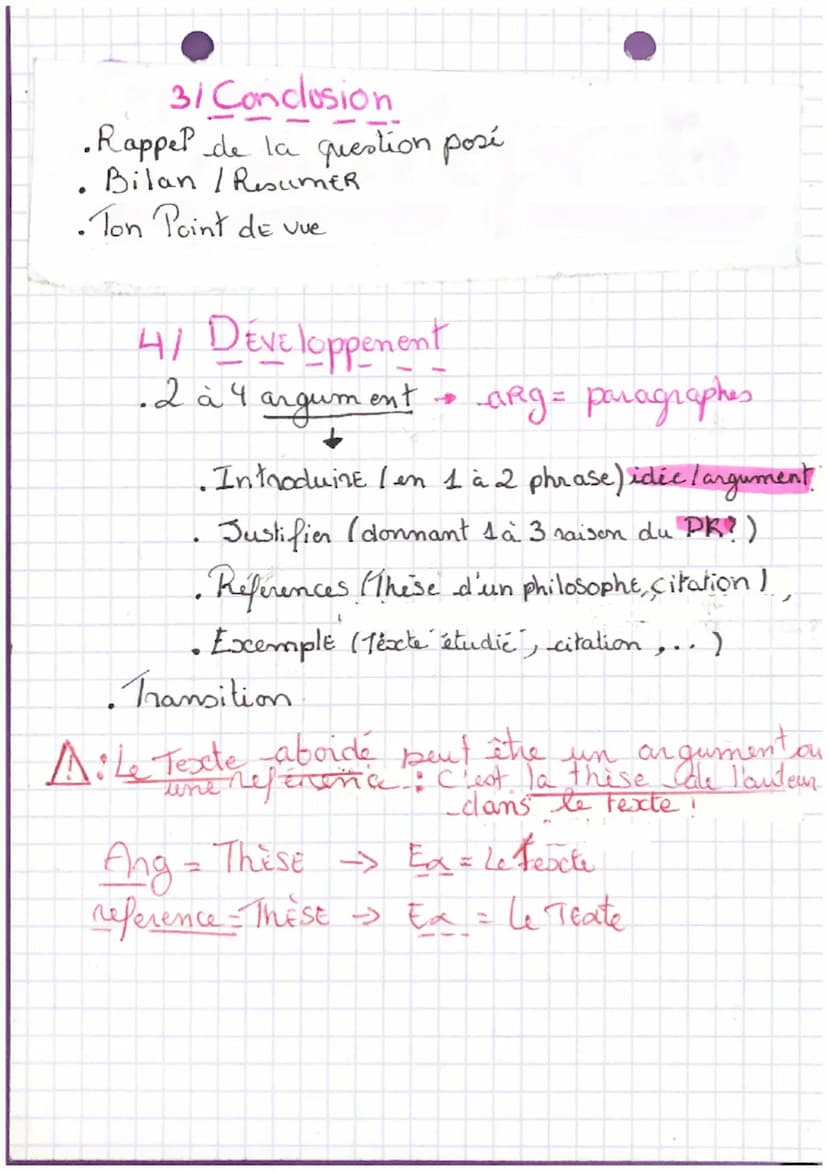 3/ Conclusion
. Rappel de la question posé
. Bilan / ResumER
. Ton Point dE vue
4/ DévEloppement
. 2 à 4 argument → arg = paragraphes
↓
. IntroduirE (en 1 à 2 phrase) idée/argument.
. Justifier (donnant 1 à 3 raison du PK?)
. Références (Thèse d'un philosophE, citation),
. ExcemplE (Téxcte étudié, citation,...)
. Transition
⚠ : Le Texte abordé peut être un argument ou
une reférence : c'est la thèse de l'auteur
dans le texte !
Arg = ThèsE → Ex = Le texcte
reference = ThèsE → Ex = Le Texte